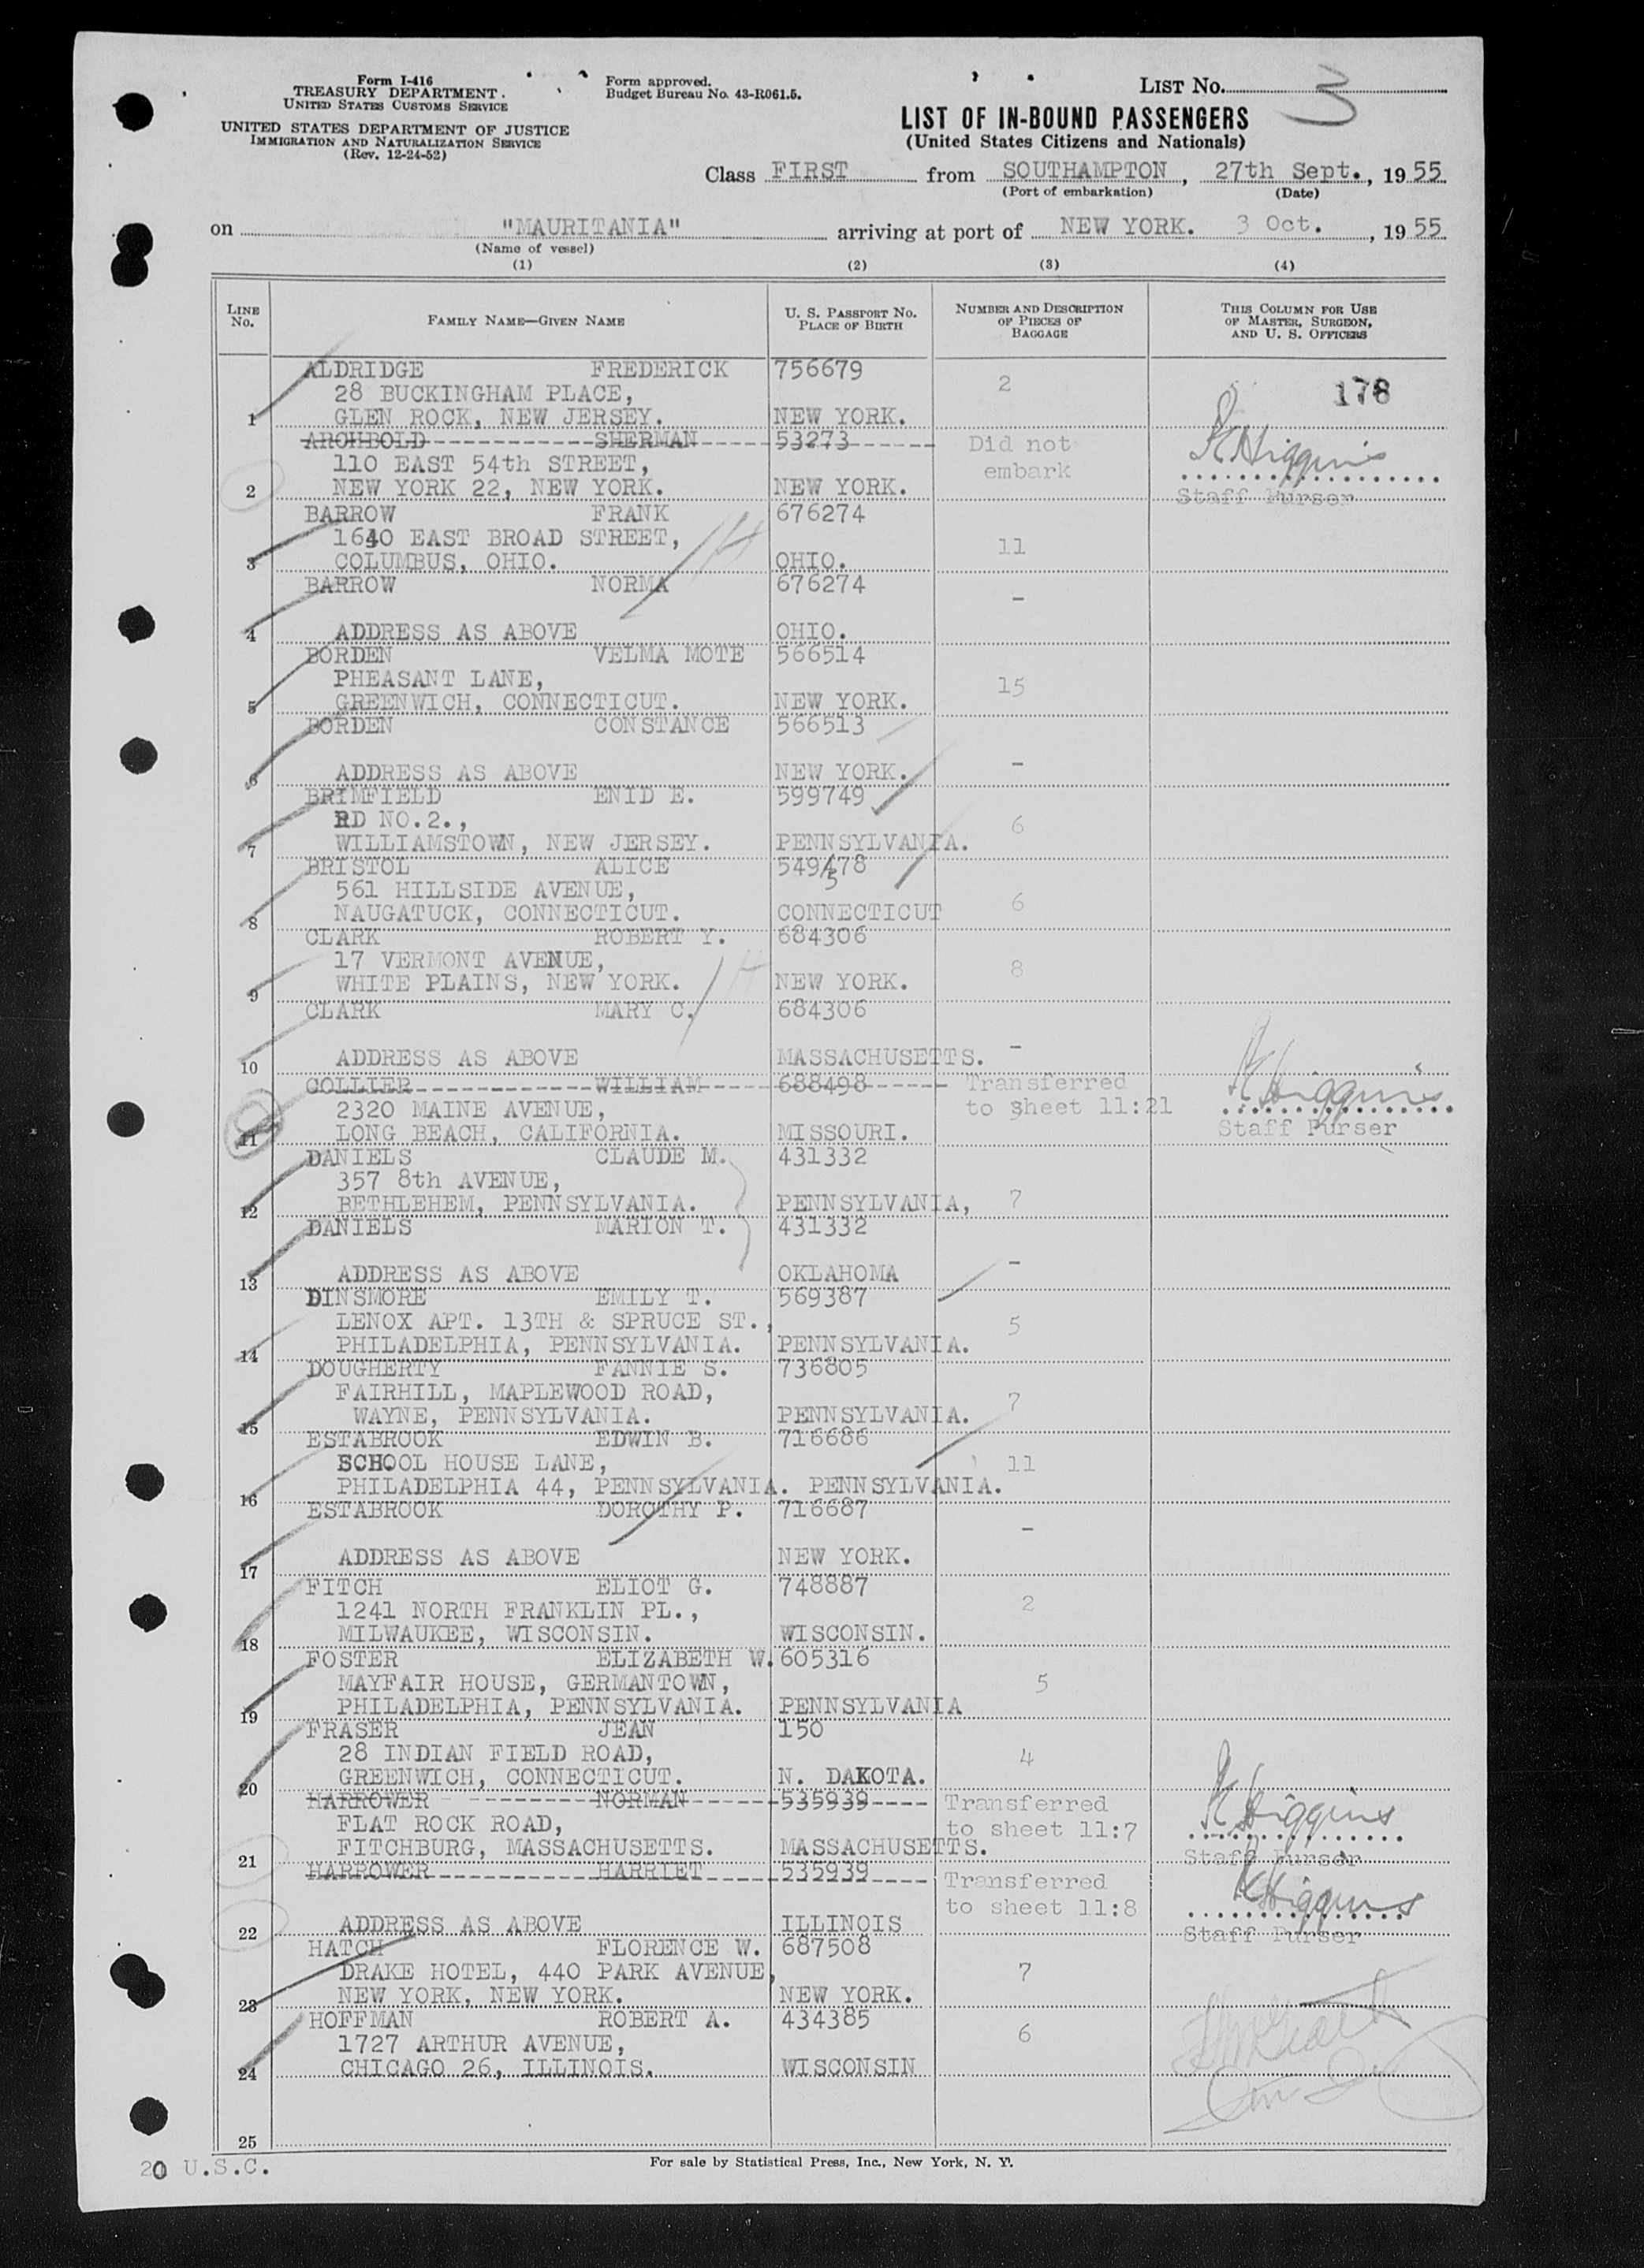 Form I-416
TREASURY DEPARTMENT.
UNITED STATES CUSTOMS SERVICE
UNITED STATES DEPARTMENT OF JUSTICE
IMMIGRATION AND NATURALIZATION SERVICE
(Rev. 12-24-52)
Form approved.
Budget Bureau No. 43-R061.5.
LIST No. 3
LIST OF IN-BOUND PASSENGERS
(United States Citizens and Nationals)
Class FIRST from SOUTHAMPTON, 27th Sept., 19 55
(Port of embarkation) (Date)
on "MAURITANIA" arriving at port of NEW YORK. 3 Oct. , 19 55
(Name of vessel)
(1) (2) (3) (4)
LINE No. FAMILY NAME—GIVEN NAME U. S. PASSPORT No. PLACE OF BIRTH NUMBER AND DESCRIPTION OF PIECES OF BAGGAGE THIS COLUMN FOR USE OF MASTER, SURGEON, AND U. S. OFFICERS
ALDRIDGE FREDERICK 756679
28 BUCKINGHAM PLACE, 2 178
1 GLEN ROCK, NEW JERSEY. NEW YORK.
ARCHBOLD SHERMAN 53273 Did not
110 EAST 54th STREET, embark K Higgins
2 NEW YORK 22, NEW YORK. NEW YORK. Staff Purser
BARROW FRANK 676274
1640 EAST BROAD STREET, 11
3 COLUMBUS, OHIO. OHIO.
BARROW NORMA 676274
-
4 ADDRESS AS ABOVE OHIO.
BORDEN VELMA MOTE 566514
PHEASANT LANE, 15
5 GREENWICH, CONNECTICUT. NEW YORK.
BORDEN CONSTANCE 566513
6 ADDRESS AS ABOVE NEW YORK. -
BRIMFIELD ENID E. 599749
RD NO.2., 6
7 WILLIAMSTOWN, NEW JERSEY. PENNSYLVANIA.
BRISTOL ALICE 549478
5
561 HILLSIDE AVENUE, 6
8 NAUGATUCK, CONNECTICUT. CONNECTICUT
CLARK ROBERT Y. 684306
17 VERMONT AVENUE, 8
9 WHITE PLAINS, NEW YORK. NEW YORK.
CLARK MARY C. 684306
10 ADDRESS AS ABOVE MASSACHUSETTS. -
COLLIER WILLIAM 688498 Transferred
2320 MAINE AVENUE, to sheet 11:21 K Higgins
11 LONG BEACH, CALIFORNIA. MISSOURI. Staff Purser
DANIELS CLAUDE M. 431332
357 8th AVENUE,
12 BETHLEHEM, PENNSYLVANIA. PENNSYLVANIA, 7
DANIELS MARION T. 431332
13 ADDRESS AS ABOVE OKLAHOMA -
DINSMORE EMILY T. 569387
LENOX APT. 13TH & SPRUCE ST., 5
14 PHILADELPHIA, PENNSYLVANIA. PENNSYLVANIA.
DOUGHERTY FANNIE S. 736805
FAIRHILL, MAPLEWOOD ROAD, 7
15 WAYNE, PENNSYLVANIA. PENNSYLVANIA.
ESTABROOK EDWIN B. 716686
SCHOOL HOUSE LANE, 11
16 PHILADELPHIA 44, PENNSYLVANIA. PENNSYLVANIA.
ESTABROOK DOROTHY P. 716687
-
17 ADDRESS AS ABOVE NEW YORK.
FITCH ELIOT G. 748887
1241 NORTH FRANKLIN PL., 2
18 MILWAUKEE, WISCONSIN. WISCONSIN.
FOSTER ELIZABETH W. 605316
MAYFAIR HOUSE, GERMANTOWN, 5
19 PHILADELPHIA, PENNSYLVANIA. PENNSYLVANIA
FRASER JEAN 150
28 INDIAN FIELD ROAD, 4
20 GREENWICH, CONNECTICUT. N. DAKOTA.
HARROWER NORMAN 535939 Transferred
FLAT ROCK ROAD, to sheet 11:7 K Higgins
21 FITCHBURG, MASSACHUSETTS. MASSACHUSETTS. Staff Purser
HARROWER HARRIET 535939 Transferred
to sheet 11:8 K Higgins
22 ADDRESS AS ABOVE ILLINOIS Staff Purser
HATCH FLORENCE W. 687508
DRAKE HOTEL, 440 PARK AVENUE, 7
23 NEW YORK, NEW YORK. NEW YORK.
HOFFMAN ROBERT A. 434385
1727 ARTHUR AVENUE, 6
24 CHICAGO 26, ILLINOIS. WISCONSIN
25
20 U.S.C.
For sale by Statistical Press, Inc., New York, N. Y.